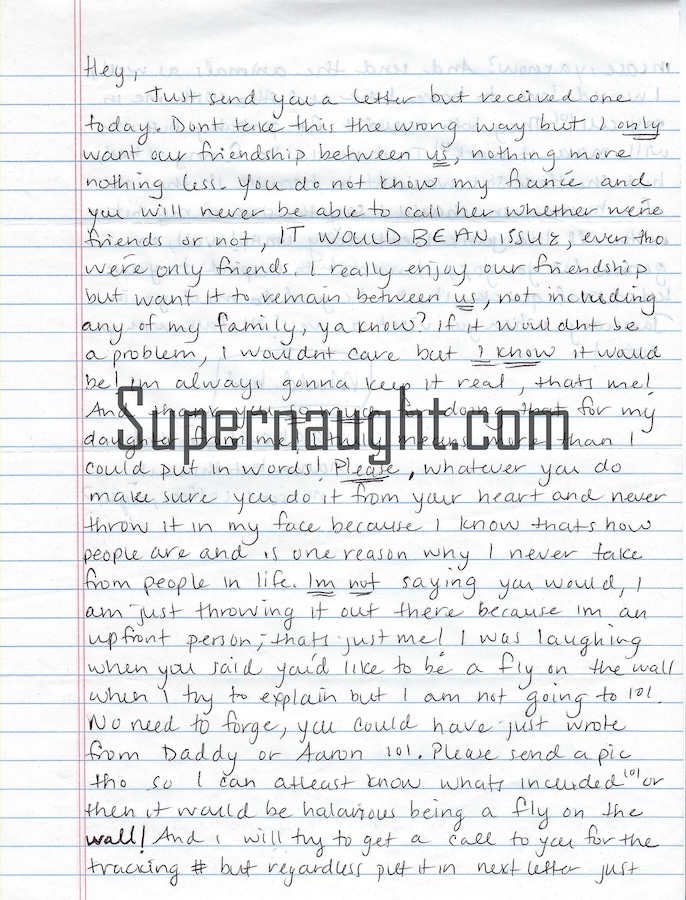 Hey,
Just send you a letter but received one
today. Dont take this the wrong way but I only
want our friendship between us, nothing more
nothing less. You do not know my fiancé and
you will never be able to call her whether we're
friends or not, IT WOULD BE AN ISSUE, even tho
we're only friends. I really enjoy our friendship
but want it to remain between us, not including
any of my family, ya know? if it wouldnt be
a problem, I wouldnt care but I know it would
be! im always gonna keep it real, thats me!
And thank you so much for doing that for my
Supernaught.com
daughter from me! I truly means more than I
could put in words! Please, whatever you do
make sure you do it from your heart and never
throw it in my face because I know thats how
people are and is one reason why I never take
from people in life. Im not saying you would, I
am just throwing it out there because im an
upfront person, thats just me! I was laughing
when you said you'd like to be a fly on the wall
when I try to explain but I am not going to lol.
No need to forge, you could have just wrote
from Daddy or Aaron lol. Please send a pic
tho so I can atleast know whats included lol or
then it would be halarious being a fly on the
wall! And i will try to get a call to you for the
tracking # but regardless put it in next letter just